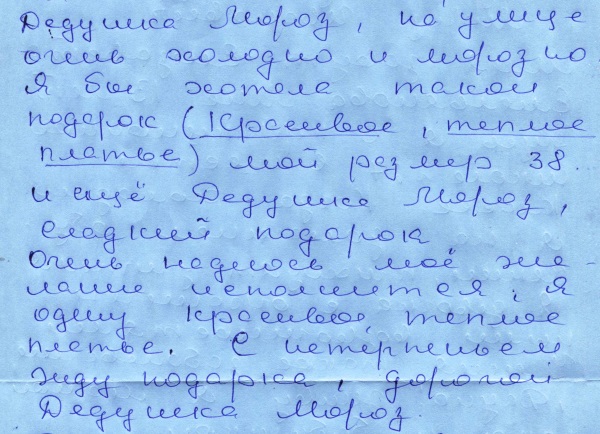 Дедушка Мороз, на улице
очень холодно и морозно.
Я бы хотела такой
подарок (красивое, теплое
платье) мой размер 38.
и ещё Дедушка Мороз,
сладкий подарок
Очень надеюсь моё же-
лание исполнится, я
одену красивое, теплое
платье. С нетерпеньем
жду подарка, дорогой
Дедушка Мороз.